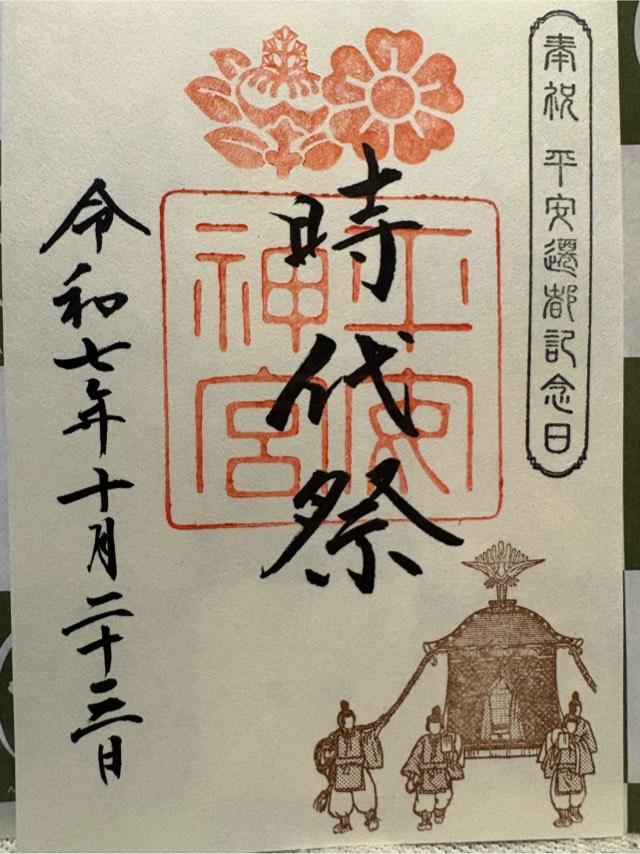 奉祝 平安遷都記念日
時代祭
平安神宮
令和七年十月二十三日